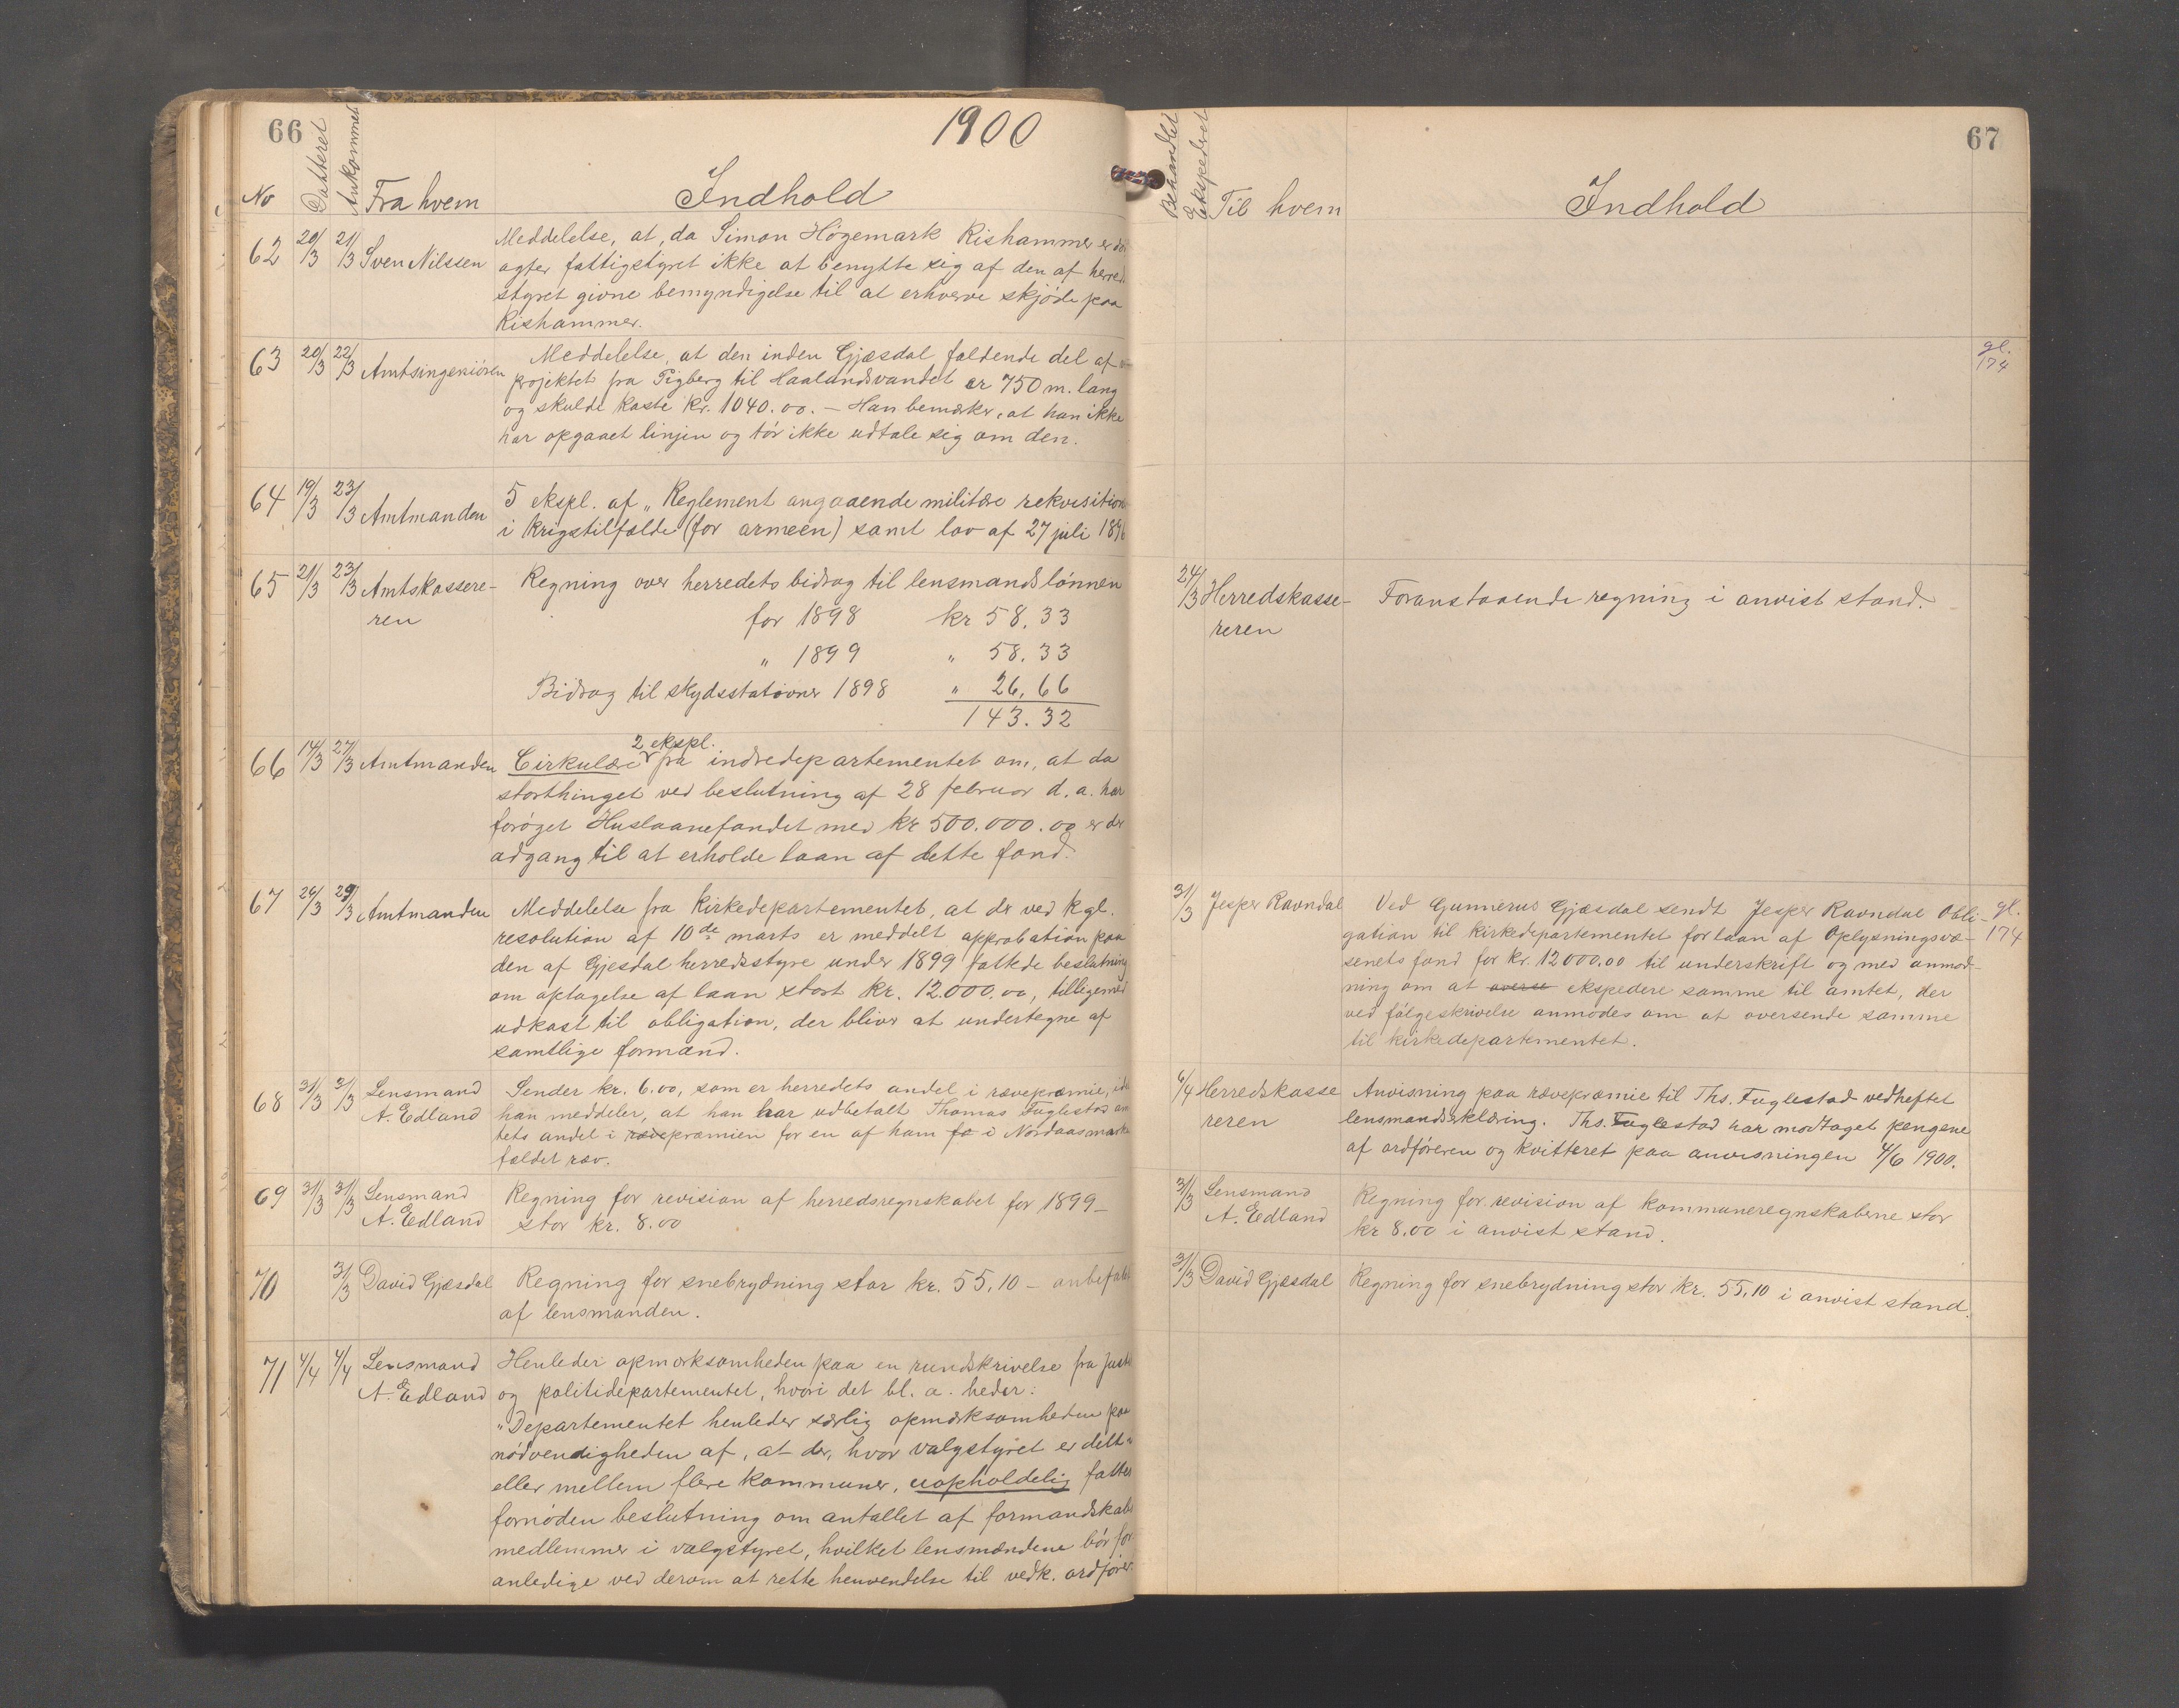 66
1900
No Datteret Ankommet Fra hvem Indhold
62 20/3 21/3 Sven Nilssen Meddelelse, at, da Simon Högemark Rishammer er
agter fattigstyret ikke at benytte sig af den af herred-
styret givne bemyndigelse til at erhverve skjöde paa
Rishammer.
63 20/3 22/3 Amtsingeniören Meddelelse, at den inden Gjæsdal faldende del af
projektet fra Tigberg til Haalandsvandet er 750 m. lang
og skulde koste kr. 1040.00. – Han bemærker, at han ikke
har opgaaet linjen og tör ikke udtale sig om den.
64 19/3 23/3 Amtmanden 5 ekspl. af „Reglement angaaende militære rekvisition
i krigstilfælde (for armeen) samt lov af 27 juli 1896
65 21/3 23/3 Amtskassere- Regning over herredets bidrag til lensmandslönnen
ren for 1898 kr 58.33
„ 1899 „ 58.33
Bidrag til skydsstationer 1898 „ 26.66
143.32
2 ekspl.
66 14/3 27/3 Amtmanden Cirkulære fra indredepartementet om, at da
storthinget ved beslutning af 28 februar d. a. har
foröget Huslaanefondet med kr 500.000.00 er der
adgang til at erholde laan af dette fond.
67 26/3 29/3 Amtmanden Meddelelse fra Kirkedepartementet, at der ved kgl.
resolution af 10de marts er meddelt approbation paa
den af Gjesdal herredsstyre under 1899 fattede beslutning
om optagelse af laan stort kr. 12.000.00, tilligemed
udkast til obligation, der bliver at undertegne af
samtlige formænd.
68 31/3 31/3 Lensmand Sender kr. 6.00, som er herredets andel i rævepræmie, idet
A. Edland han meddeler, at han har udbetalt Thomas Fuglestad am
tets andel i rævepræmien for en af ham fæ i Nordaasmarken
fældet ræv.
69 31/3 31/3 Lensmand Regning for revision af herredsregnskabet for 1899 –
A. Edland stor kr. 8.00
70 31/3 David Gjesdal Regning for snebrydning stor kr. 55,10 – anbefalet
af lensmanden.
71 4/4 4/4 Lensmand Henleder opmerksomheden paa en rundskrivelse fra Justi
A. Edland og politidepartementet, hvori det bl. a. heder:
„Departementet henleder særlig opmærksomheden paa
nödvendigheden af, at der, hvor valgstyret er delt
eller mellem flere kommuner, uopholdelig fattes
fornöden beslutning om antallet af formandskabs
medlemmer i valgstyret, hvilket lensmændene bör for
anledige ved derom at rette henvendelse til vedk. ordförer.
67
Behandlet Ekspederet Til hvem Indhold
gl.
174
24/3 Herredskasse- Foranstaaende regning i anvist stand.
reren
31/3 Jesper Ravndal Ved Gunnerus Gjæsdal sendt Jesper Ravndal Obli- gl.
gation til kirkedepartementet for laan af Oplysningsvæ- 174
senets fond for kr. 12000.00 til underskrift og med anmod-
ning om at overse ekspedere samme til amtet, der
ved fölgeskrivelse anmodes om at oversende samme
til kirkedepartementet.
6/4 Herredskasse Anvisning paa rævepræmie til Ths. Fuglestad vedheftet
reren lensmandserklæring. Ths. Fuglestad har modtaget pengene
af ordföreren og kvitteret paa anvisningen 4/6 1900.
31/3 Lensmand Regning for revision af kommuneregnskaberne stor
A. Edland kr 8.00 i anvist stand.
31/3 David Gjesdal Regning for snebrydning stor kr. 55,10 i anvist stand.